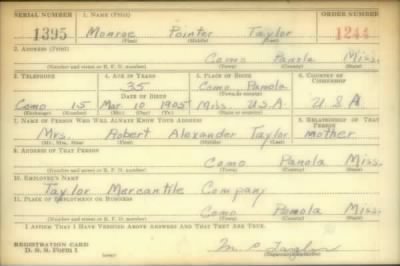 SERIAL NUMBER 1. NAME (Print) ORDER NUMBER
1395 Monroe Pointer Taylor 1244
(First) (Middle) (Last)
2. ADDRESS (Print)
Como Panola Miss.
(Number and street or R. F. D. number) (Town) (County) (State)
3. TELEPHONE 4. AGE IN YEARS 5. PLACE OF BIRTH 6. COUNTRY OF CITIZENSHIP
35 Como Panola
DATE OF BIRTH (Town or county)
Como 15 Mar. 10 1905 Miss. U.S.A U.S.A
(Exchange) (Number) (Mo.) (Day) (Yr.) (State or country)
7. NAME OF PERSON WHO WILL ALWAYS KNOW YOUR ADDRESS 8. RELATIONSHIP OF THAT PERSON
Mrs. Robert Alexander Taylor mother
(Mr., Mrs., Miss) (First) (Middle) (Last)
9. ADDRESS OF THAT PERSON
Como Panola Miss.
(Number and street or R. F. D. number) (Town) (County) (State)
10. EMPLOYER'S NAME
Taylor Mercantile Company
11. PLACE OF EMPLOYMENT OR BUSINESS
Como Panola Miss.
(Number and street or R. F. D. number) (Town) (County) (State)
I AFFIRM THAT I HAVE VERIFIED ABOVE ANSWERS AND THAT THEY ARE TRUE.
REGISTRATION CARD
D. S. S. FORM 1 (over) M. P. Taylor